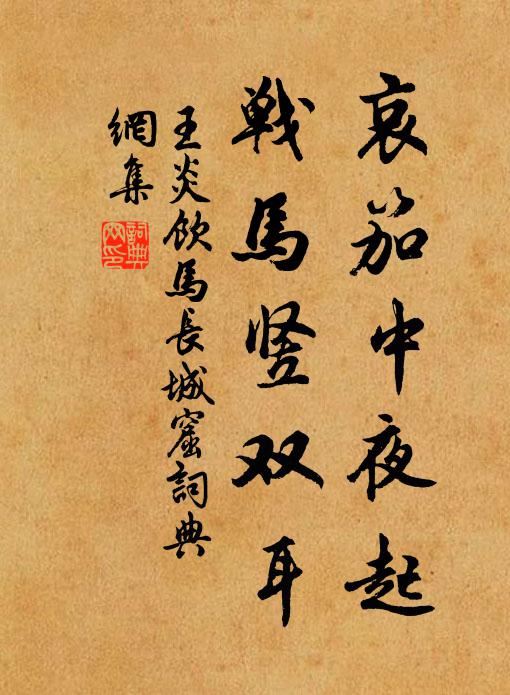 哀笳中夜起
戦馬竖双耳
王炎飲馬長城窟詞典
網集
詞典
网印